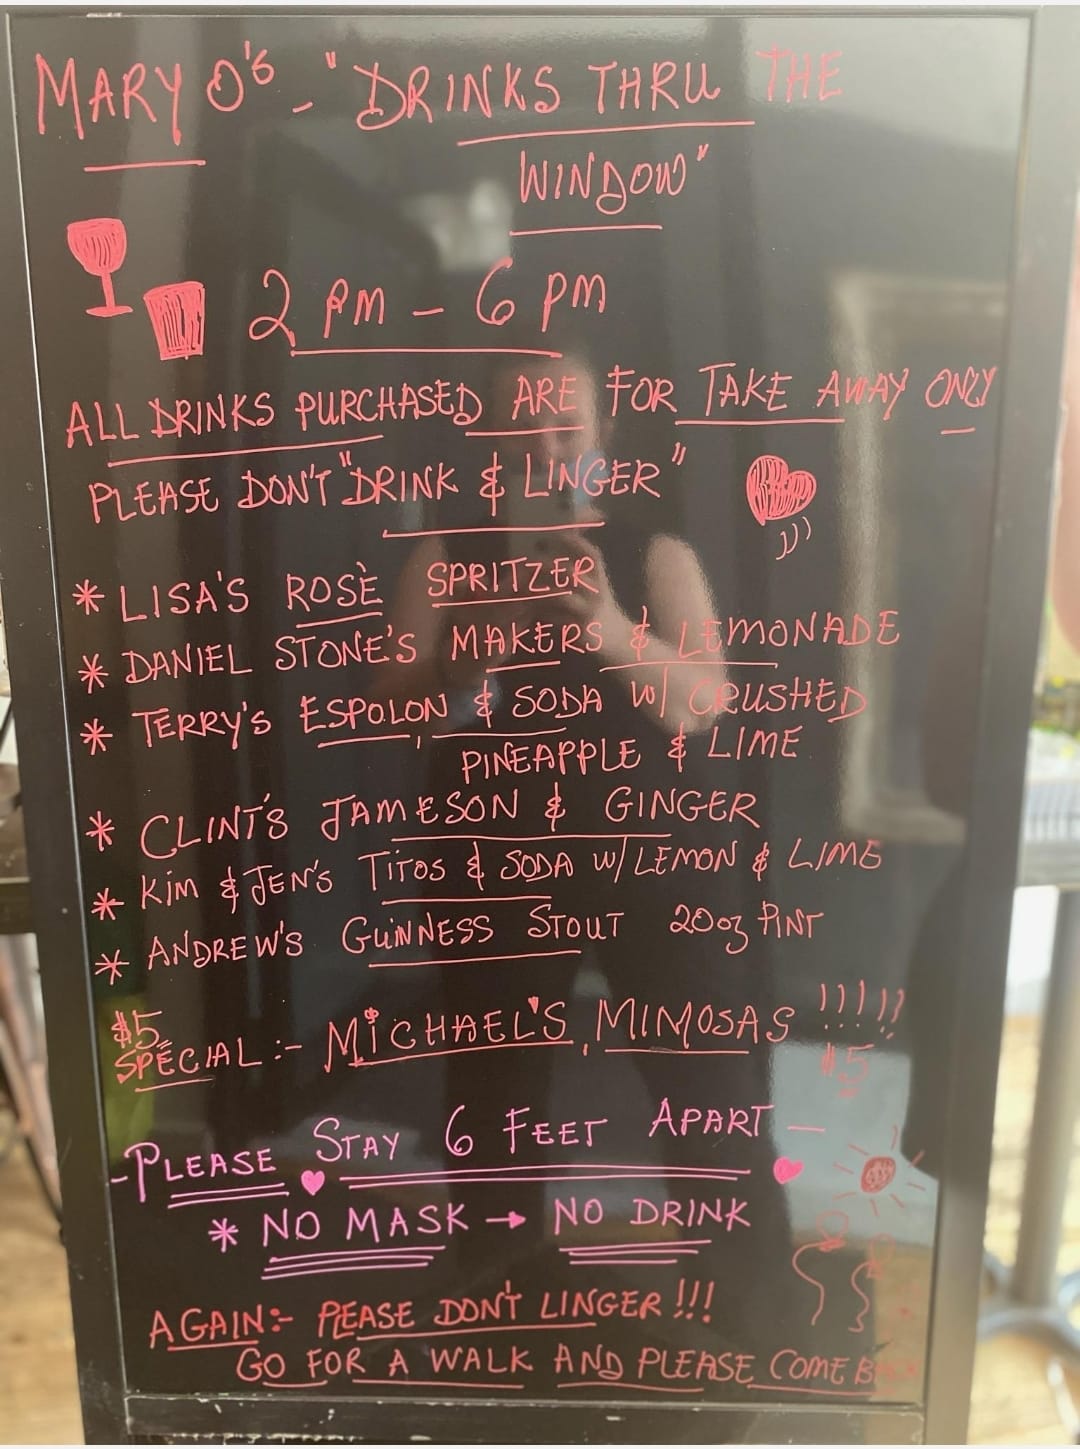 MARY O'S - "DRINKS THRU THE
WINDOW"
2 PM - 6 PM
ALL DRINKS PURCHASED ARE FOR TAKE AWAY ONLY
PLEASE DON'T "DRINK & LINGER"
* LISA'S ROSÈ SPRITZER
* DANIEL STONE'S MAKERS & LEMONADE
* TERRY'S ESPOLON & SODA W/ CRUSHED
PINEAPPLE & LIME
* CLINT'S JAMESON & GINGER
* KIM & JEN'S TITOS & SODA W/ LEMON & LIME
* ANDREW'S GUINNESS STOUT 20oz PINT
$5
SPECIAL:- MICHAEL'S MIMOSAS !!!!!
$5
-PLEASE STAY 6 FEET APART -
* NO MASK → NO DRINK
AGAIN:- PLEASE DON'T LINGER!!!
GO FOR A WALK AND PLEASE COME BACK